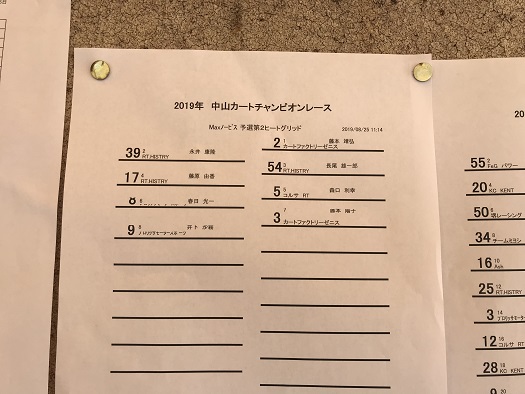 2019年 中山カートチャンピオンレース
Maxノービス 予選第2ヒートグリッド 2019/08/25 11:14
2 1 藤本 靖弘
カートファクトリーゼニス
39 2 永井 康隆
RT.HISTRY
54 3 長尾 雄一郎
RT.HISTRY
17 4 藤原 由香
RT.HISTRY
5 5 森口 和幸
コルサ RT
8 6 春日 光一
3 7
カートファクトリーゼニス
9 8
55 2
20 4
KG KENT
50 6
堺レーシング
34 8
チームミヨシ
16 10
Ash
25 12
RT.HISTRY
3 14
12 16
コルサ RT
28 18
KG KENT
9 20